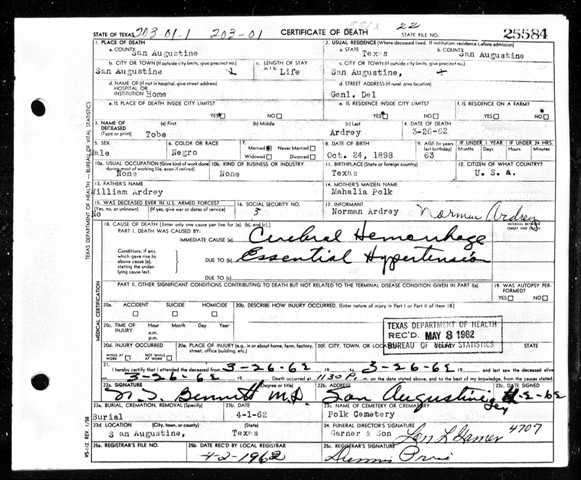 STATE OF TEXAS 203 01-1 203-01 CERTIFICATE OF DEATH 22 STATE FILE NO. 25584
1. PLACE OF DEATH
a. COUNTY
San Augustine
2. USUAL RESIDENCE (Where deceased lived. If institution: residence before admission)
a. STATE
Texas
b. COUNTY
San Augustine
b. CITY OR TOWN (If outside city limits, give precinct no.)
San Augustine
c. LENGTH OF STAY
Life
c. CITY OR TOWN (If outside city limits, give precinct no.)
San Augustine,
d. NAME OF (If not in hospital, give street address)
HOSPITAL OR
INSTITUTION Home
d. STREET ADDRESS (If rural, give location)
Genl. Del
e. IS PLACE OF DEATH INSIDE CITY LIMITS?
YES NO
e. IS RESIDENCE INSIDE CITY LIMITS?
YES NO
f. IS RESIDENCE ON A FARM?
YES NO
3. NAME OF DECEASED
(Type or print)
(a) First
Tobe
(b) Middle
(c) Last
Ardrey
4. DATE OF DEATH
3-26-62
5. SEX
ale
6. COLOR OR RACE
Negro
7. Married Never Married
Widowed Divorced
8. DATE OF BIRTH
Oct. 24, 1898
9. AGE (In years last birthday)
63
IF UNDER 1 YEAR
Months Days
IF UNDER 24 HRS.
Hours Min.
10a. USUAL OCCUPATION (Give kind of work done during most of working life, even if retired)
None
10b. KIND OF BUSINESS OR INDUSTRY
None
11. BIRTHPLACE (State or foreign country)
Texas
12. CITIZEN OF WHAT COUNTRY?
U. S. A.
13. FATHER'S NAME
William Ardrey
14. MOTHER'S MAIDEN NAME
Mahalia Polk
15. WAS DECEASED EVER IN U.S. ARMED FORCES?
(Yes, no, or unknown) (If yes, give war or dates of service)
No
16. SOCIAL SECURITY NO.
3
17. INFORMANT
Norman Ardrey Norman Ardrey
18. CAUSE OF DEATH (Enter only one cause per line for (a), (b), and (c).)
PART I. DEATH WAS CAUSED BY:
IMMEDIATE CAUSE (a) Cerebral Hemorrhage
Conditions, if any, which gave rise to above cause (a), stating the underlying cause last.
DUE TO (b) Essential Hypertension
DUE TO (c)
PART II. OTHER SIGNIFICANT CONDITIONS CONTRIBUTING TO DEATH BUT NOT RELATED TO THE TERMINAL DISEASE CONDITION GIVEN IN PART I(a)
19. WAS AUTOPSY PERFORMED?
YES NO
20a. ACCIDENT SUICIDE HOMICIDE
20b. DESCRIBE HOW INJURY OCCURRED. (Enter nature of injury in Part I or Part II of item 18)
20c. TIME OF INJURY
Hour Month Day Year
TEXAS DEPARTMENT OF HEALTH
REC'D. MAY 8 1962
BUREAU OF STATISTICS
20d. INJURY OCCURRED
WHILE AT WORK NOT WHILE AT WORK
20e. PLACE OF INJURY (e.g., in or about home, farm, factory, street, office building, etc.)
20f. CITY, TOWN, OR LOCATION
21. I certify that I attended the deceased from 3-26-62 to 3-26-62 and last saw the deceased alive
3-26-62 Death occurred at 1130 P. m. on the date stated above; and to the best of my knowledge, from the causes stated.
22a. SIGNATURE (Degree or title)
Bennett M.D.
22b. ADDRESS
San Augustine Tex
22c. DATE SIGNED
4-2-62
23a. BURIAL, CREMATION, REMOVAL (Specify)
Burial
23b. DATE
4-1-62
23c. NAME OF CEMETERY OR CREMATORY
Polk Cemetery
23d. LOCATION (City, town, or county) (State)
San Augustine, Texas
24. FUNERAL DIRECTOR'S SIGNATURE
Garner & Son 4707
25a. REGISTRAR'S FILE NO.
25b. DATE REC'D BY LOCAL REGISTRAR
4-2-1962
25c. REGISTRAR'S SIGNATURE
TEXAS DEPARTMENT OF HEALTH — BUREAU OF VITAL STATISTICS
MEDICAL CERTIFICATION
VS-112 REV. 1/58